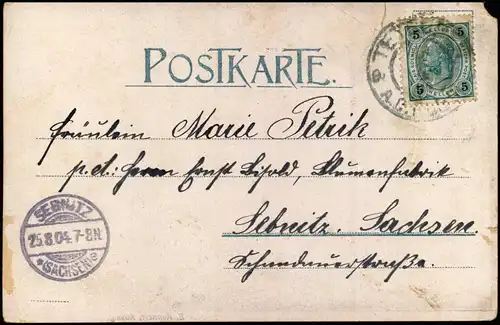 POSTKARTE.
5 5
5 5
TE
Fräulein Marie Petrik
p. ad: Herrn Ernst Lipfold, Blumenfabrik
Sebnitz. Sachsen.
Schandauerstraße.
SEBNITZ
25.8.04. 7-8N.
*(SACHSEN)*